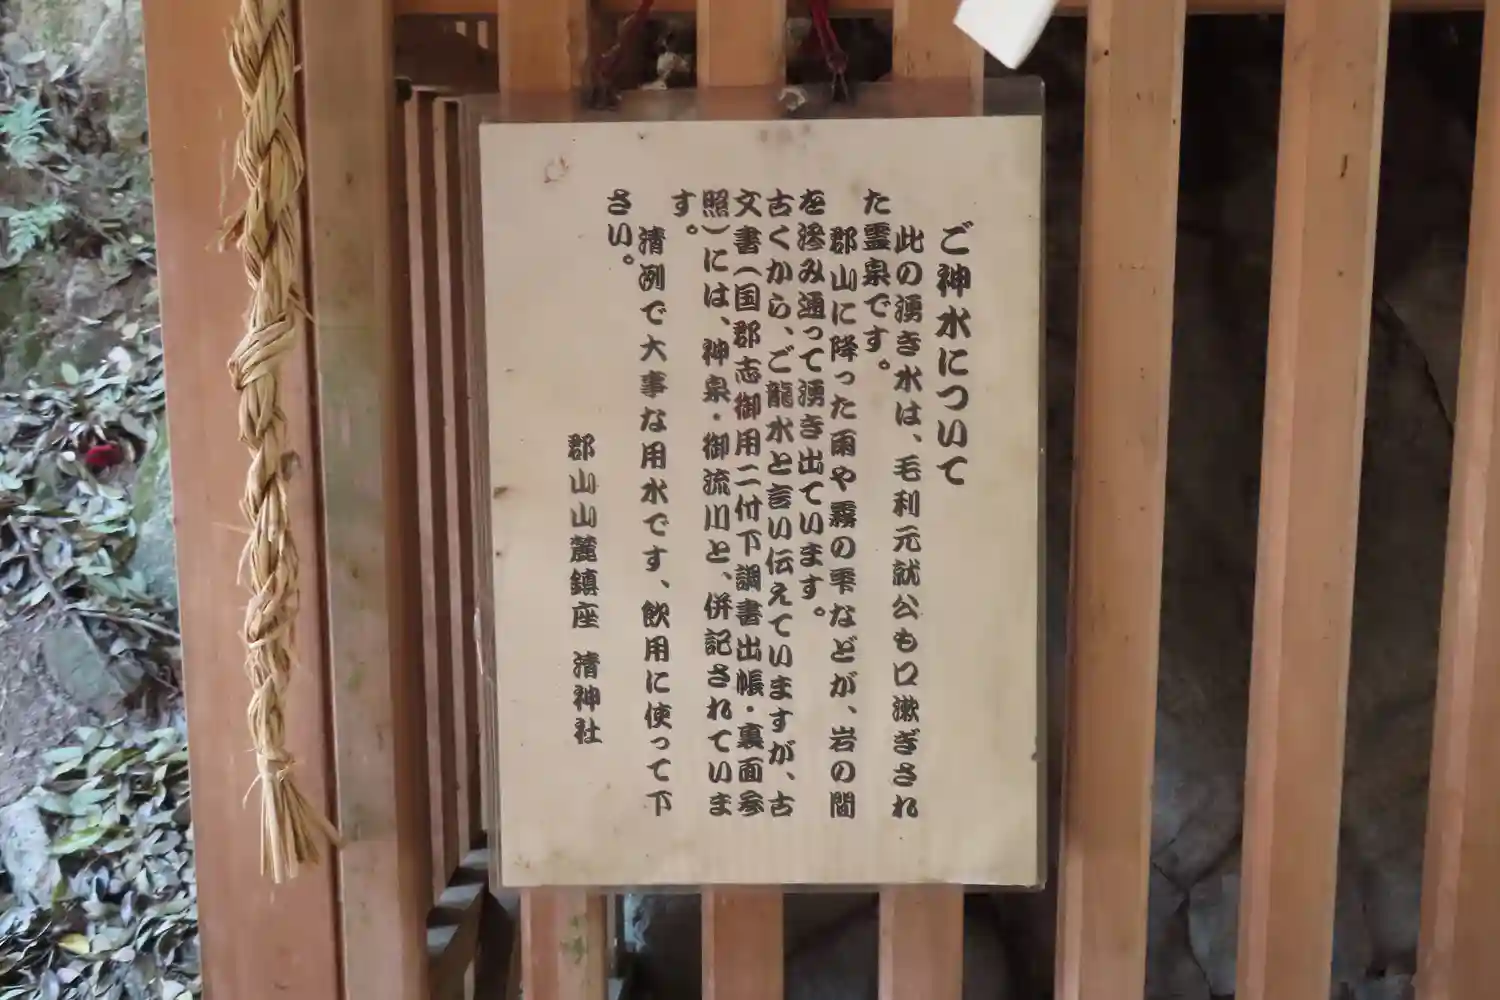 ご神水について
此の湧き水は、毛利元就公も口漱ぎされ
た霊泉です。
郡山に降った雨や霧の雫などが、岩の間
を滲み通って湧き出ています。
古くから、ご龍水と言い伝えていますが、古
文書(国郡志御用二付下調書出帳・裏面参
照)には、神泉・御流川と、併記されていま
す。
清冽で大事な用水です、飲用に使って下
さい。
郡山山麓鎮座 清神社